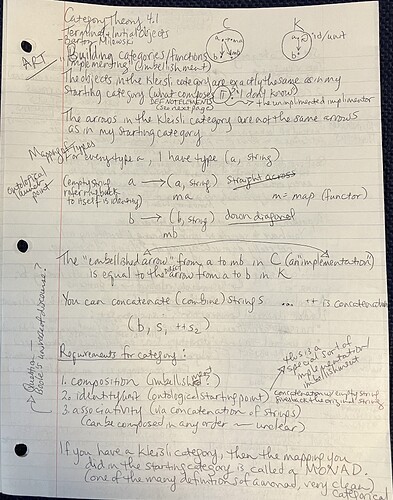 Category Theory 4.1
Terminal & Initial Objects
- Bartosz Milewski
C
K
id/unit
ART
Building categories/functions
"implementing" (embellishment)
The objects in the Kleisli category are exactly the same as in my
starting category (what composes I don't know)
DEF NOT ELEMENTS
(see next page)
the unimplimented implimentor
The arrows in the Kleisli category are not the same arrows
as in my starting category
Mapping of Types
For every type a, I have type (a, string)
ontological launch point
(empty string refers me back to itself is identity)
a → (a, string) straight across
ma
m = map (functor)
b → (b, string) down diagonal
mb
The "embellished arrow" from a to mb in C (an "implementation")
is equal to the direct arrow from a to b in K
You can concatenate (combine) strings ... ++ is concatenation
(b, s, ++ s2)
Question —
Bible's univocal discourse?
Requirements for category:
this is a special sort of implementation/embellishment
1. composition (embellished?)
2. identity/unit (ontological starting point)
concatenation w/ empty string gives back the original string
3. associativity (via concatenation of strings)
(can be composed in any order — unclear)
If you have a Kleisli category, then the mapping you
did in the starting category is called a MONAD.
(one of the many definitions of a monad, very clean)
categorical